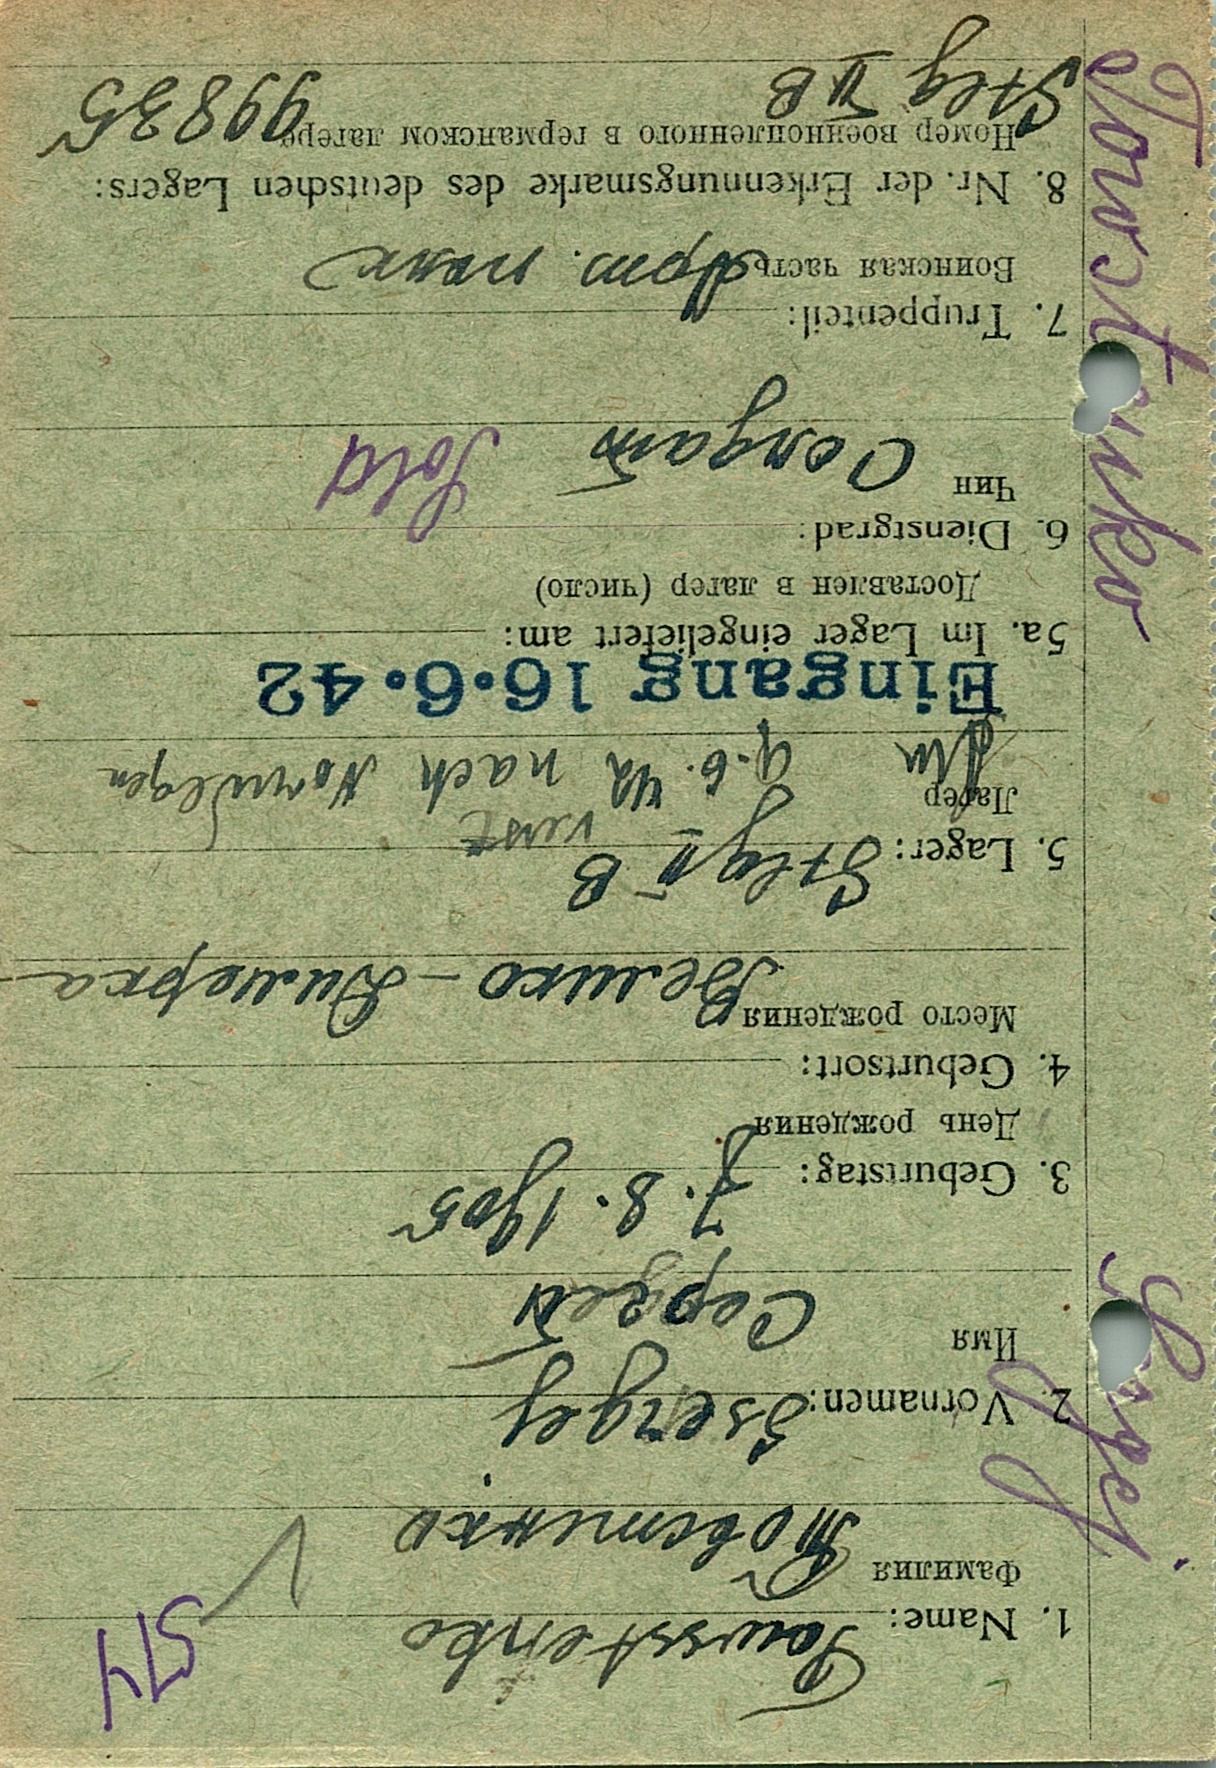 574
1. Name: Towsstenko
Фамилия Товстенко
2. Vornamen: Ssergej
Имя Сергей
3. Geburtstag: 7. 8. 1905
День рождения
4. Geburtsort:
Место рождения Велико - Димерка
5. Lager: Stlg II B
Лагер
9. 6. 42 nach Norwegen
verst
Eingang 16.6.42
5a. Im Lager eingeliefert am:
Доставлен в лагер (число)
6. Dienstgrad:
Чин Солдат Sold
7. Truppenteil:
Воинская часть Арт. полк
8. Nr. der Erkennungsmarke des deutschen Lagers:
Номер военнопленного в германском лагере 99835
Stlg II B